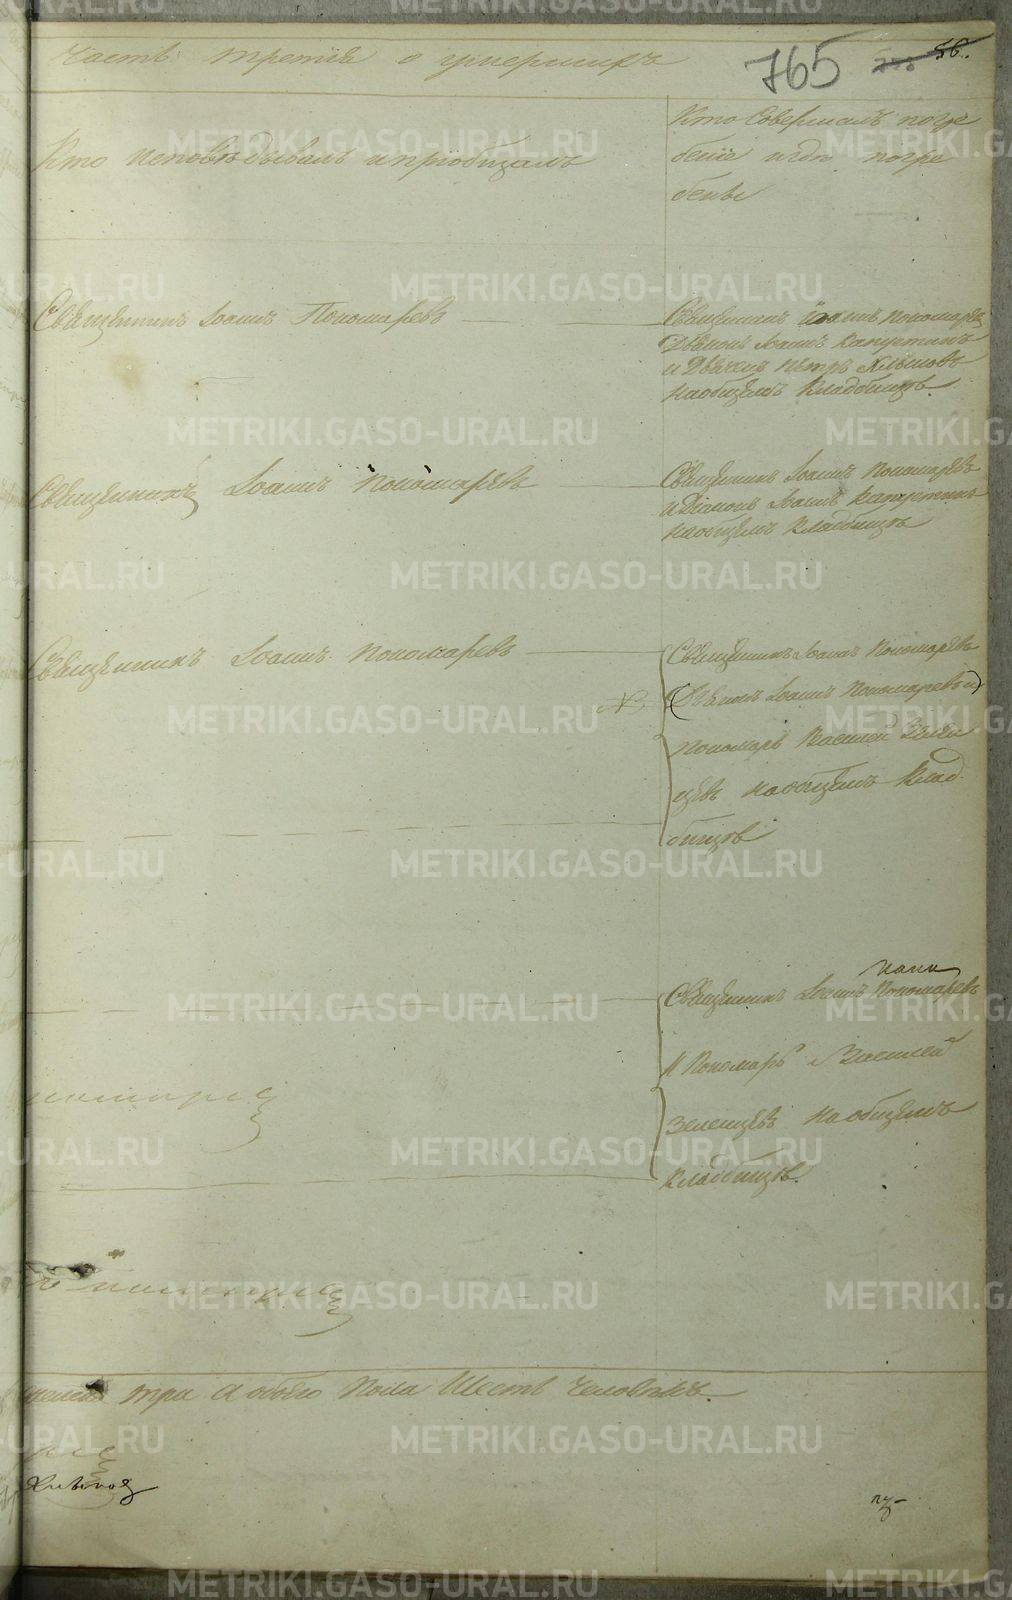 Часть третія о умершихъ
765
56.
Кто исповѣдывалъ и пріобщалъ
Кто Совершалъ погре
беніе и гдѣ погре
бены
Священникъ Іоаннъ Пономаревъ
Священникъ Іоаннъ Пономаревъ
Діаконъ Іоаннъ Капустинъ
и Дьячекъ Петръ Хлыновъ
на общемъ Кладбищѣ.
Священникъ Іоаннъ Пономаревъ
Священникъ Іоаннъ Пономаревъ
и Діаконъ Іоаннъ Капустинъ
на общемъ Кладбищѣ
Священникъ Іоаннъ Пономаревъ
Священникъ Іоаннъ Пономаревъ
(Діаконъ Іоаннъ Пономаревъ и)
пономарь Василей Зелен
цевъ на общемъ Клад
бищѣ
Священникъ Іоаннъ Пономаревъ
и Пономарь Василей
Зеленцевъ на общемъ
Кладбищѣ.
три А обоего пола Шесть Человѣкъ.
METRIKI.GASO-URAL.RU